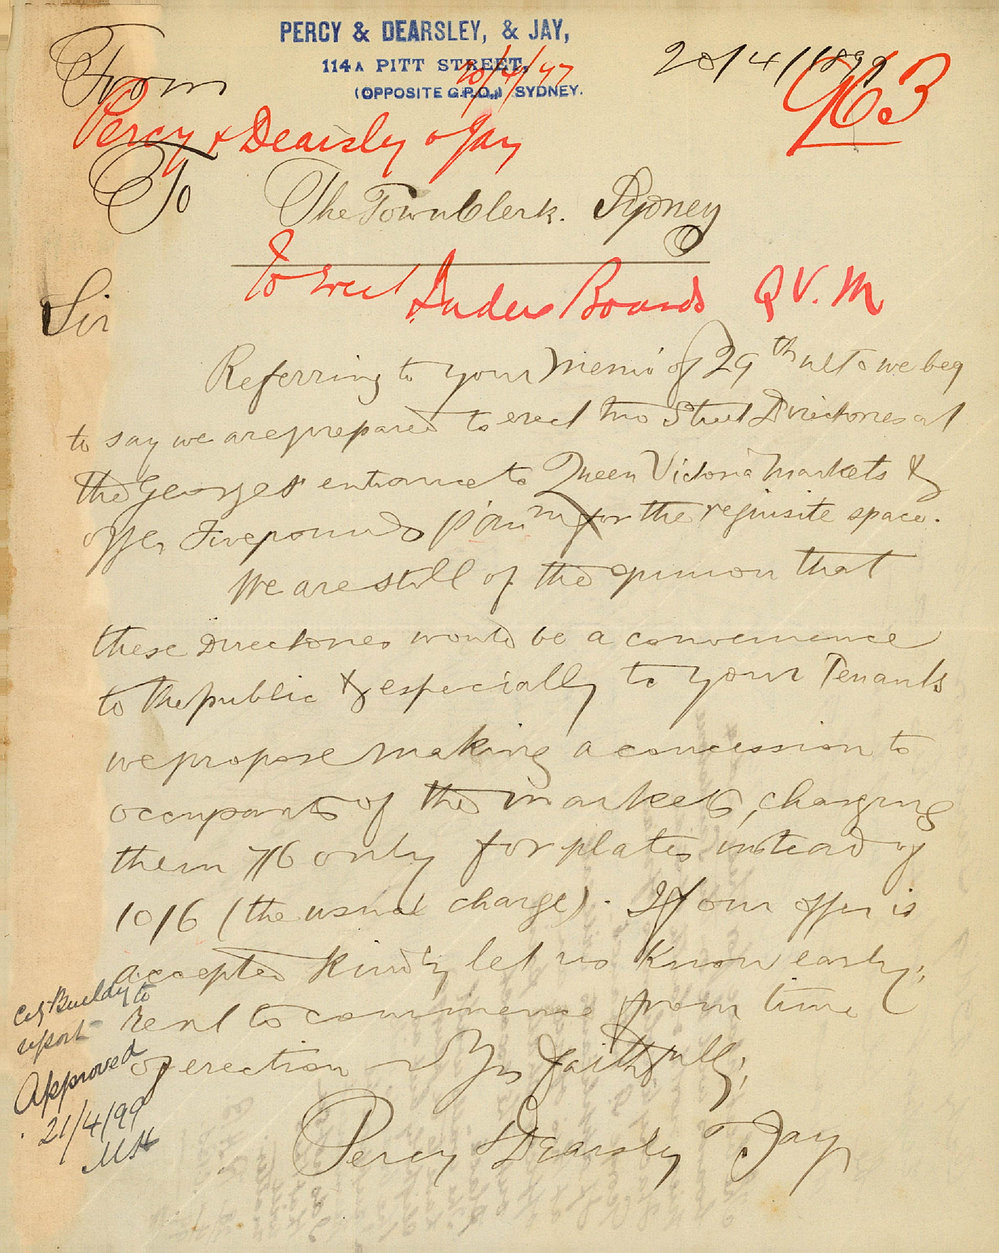 PERCY & DEARSLEY, & JAY,
114A PITT STREET,
(OPPOSITE G.P.O.,) SYDNEY.
20/4/1899
963
From
Percy & Dearsly & Jay
To
The Town Clerk. Sydney
To erect Index Boards Q V. M
Sir
Referring to your Memo of 29th ulto we beg
to say we are prepared to erect two Street Directories at
the George St entrance to Queen Victoria Markets &
offer Five pounds p. ann for the requisite space.
We are still of the opinion that
these Directories would be a convenience
to the public & especially to your Tenants
we propose making a concession to
occupants of the markets, charging
them 7/6 only for plates instead of
10/6 (the usual charge). If our offer is
accepted kindly let us know early,
Rent to commence from time
of erection
Yrs faithfully,
Percy & Dearsly & Jay
City Buildg to
report
Approved
21/4/99